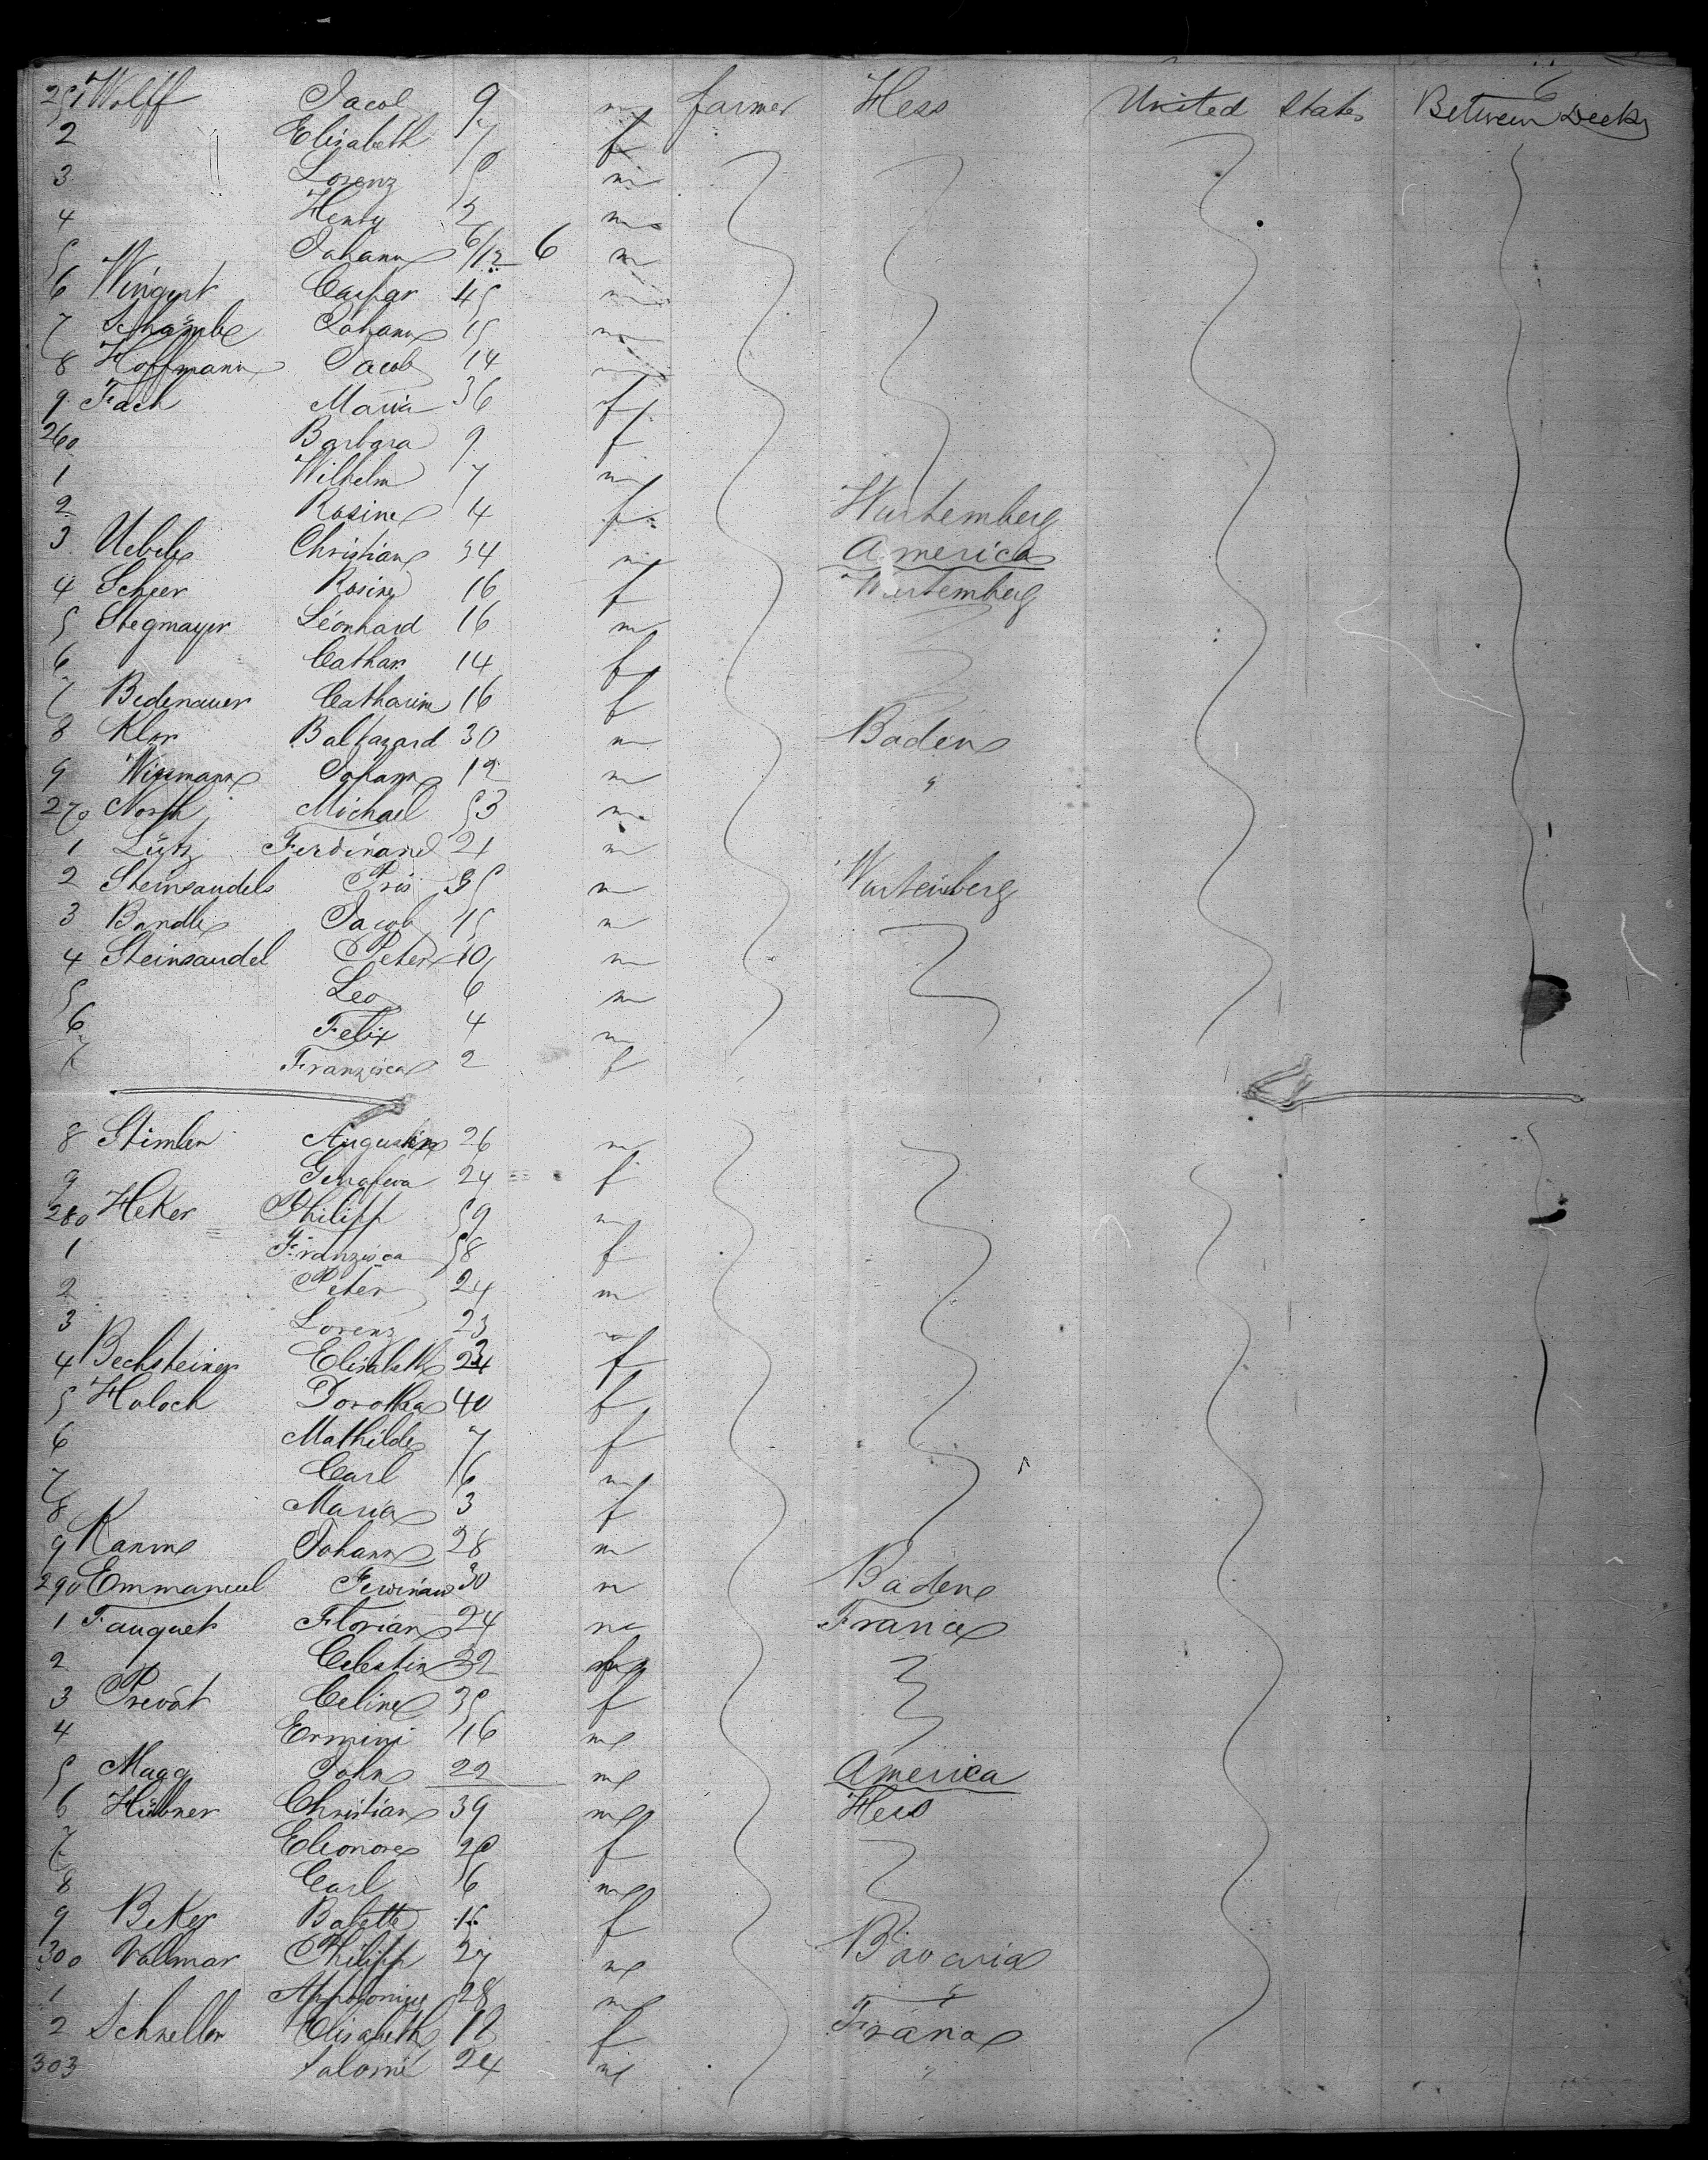 6
251 Wolff Jacob 9 m farmer Hess United States Between Decks
2 Elisabeth 7 f
3 Lorenz 5 m
4 Henry 2 m
5 Johann 6/12 6 m
6 Wingert Caspar 45 m
7 Johann 15 m
8 Hoffmann Jacob 14 m
9 Fach Maria 36 f
260 Barbara 9 f
1 Wilhelm 7 m
2 Rosine 4 f Wurtemberg
3 Uebele Christian 34 m America
4 Scheer Rosine 16 f Wurtemberg
5 Stegmayer Leonhard 16 m
6 Cathar 14 f
7 Bedenauer Catharine 16 f
8 Klor Baltazard 30 m Baden
9 Wissmann Johann 12 m "
270 North Michael 53 m
1 Lütz Ferdinand 21 m
2 Steinsandels 35 m Wurtemberg
3 Bandle Jacob 15 m
4 Steinsandel Peter 10 m
5 Leo 6 m
6 Felix 4 m
7 Franzisca 2 f
8 Stimlen Augustin 26 m
9 Genofeva 24 f
280 Heker Philipp 59 m
1 Franzisca 58 f
2 Peter 24 m
3 Lorenz 23 m
4 Bechsteiner Elisabeth 24 f
5 Holoch Dorothea 40 f
6 Mathilde 7 f
7 Carl 6 m
8 Maria 3 f
9 Kamm Johann 28 m
290 Emmanuel 30 m Baden
1 Fauquet Florian 24 m France
2 Celestin 32
3 Prevôt Celine 35 f
4 Ermini 16 m
5 Magg John 22 m America
6 Hübner Christian 39 m Hess
7 Eleonore 28 f
8 Carl 6 m
9 Beker Babette f
300 Vollmar Philipp 27 m Bavaria
1 28 m "
2 Schneller Elisabeth 18 f France
303 Salomé 24 m "